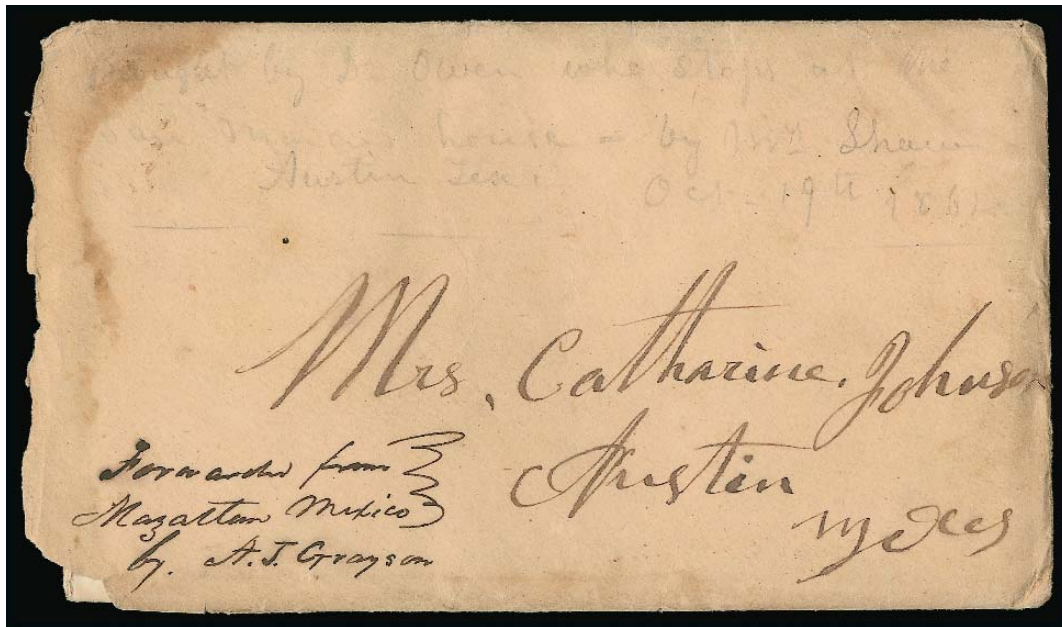 by Dr Owen who stops at the
house = by Mr Shaw
Austin Texs
Oct. 19th 186
Mrs, Catharine, Johnson
Austin
Forwarded from
Mazatlan Mexico
by. A. J. Grayson